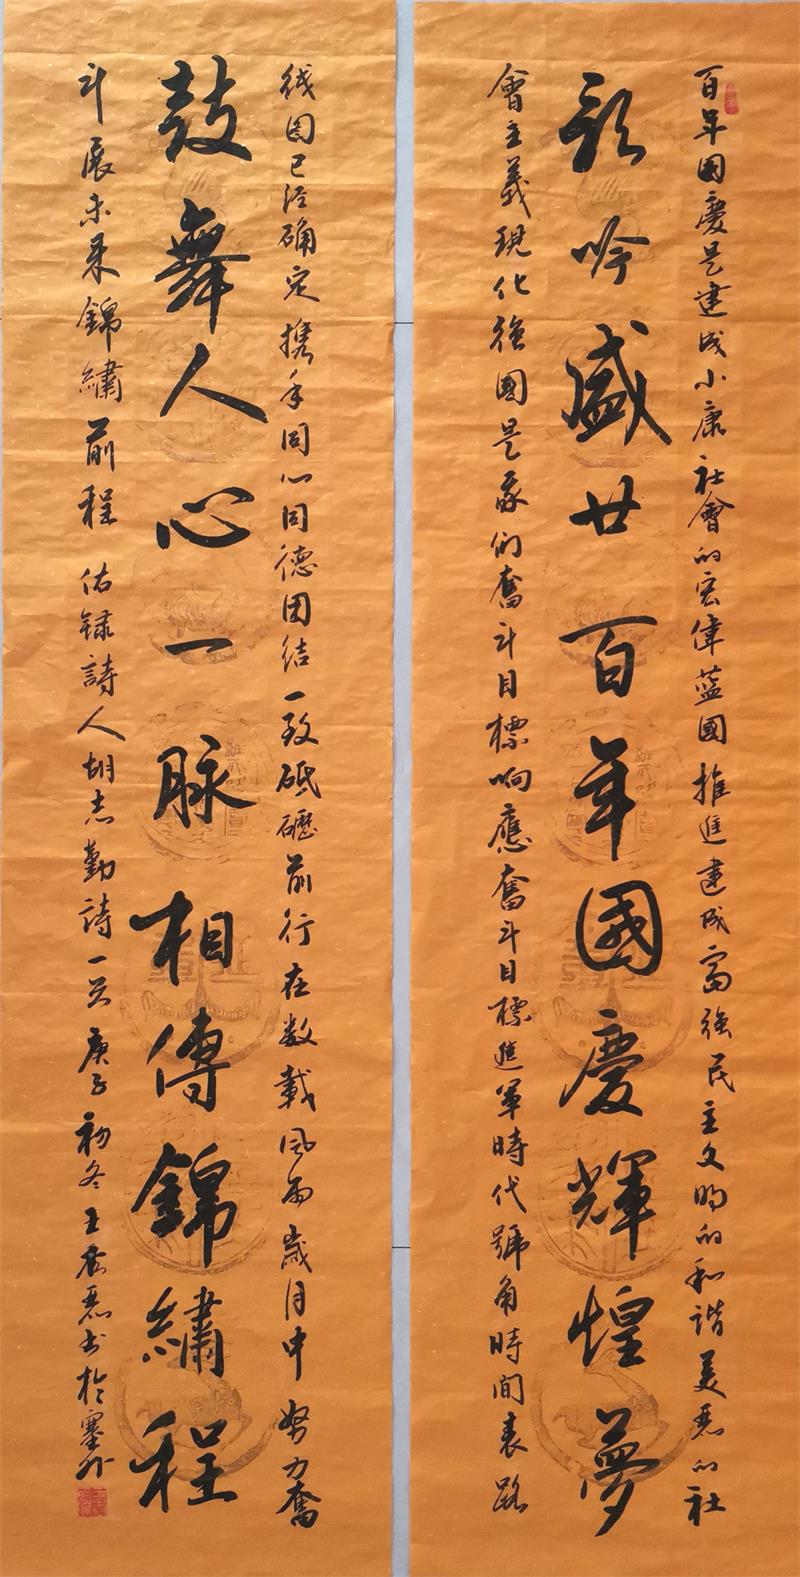 百年國慶是建成小康社會的宏偉藍國推進建成富強民主文明的和諧美麗的社
歌吟盛世百年國慶輝煌夢
會主義現化強國是我們奮斗目標响應奮斗目標進軍時代號角時間表路
线图已经确定携手同心同德团结一致砥礪前行在数載风雨歲月中努力奮
鼓舞人心一脉相傳錦繡程
斗展未来錦繡前程 佑録詩人胡志勤詩一首 庚子初冬王秀麗书於塞外